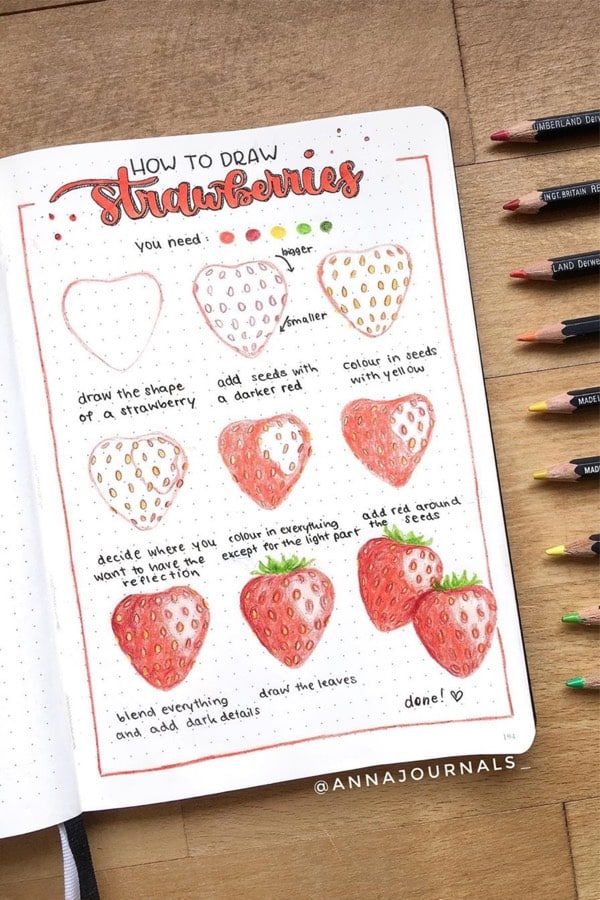 HOW TO DRAW
strawberries
you need:
bigger
smaller
draw the shape
of a strawberry
add seeds with
a darker red
colour in seeds
with yellow
decide where you
want to have the
reflection
colour in everything
except for the light part
add red around
the seeds
blend everything
and add dark details
draw the leaves
done! ♡
194
@ANNAJOURNALS_
UMBERLAND Derw
INGT. BRITAIN RE
LAND Derwe
MADE
MADE I